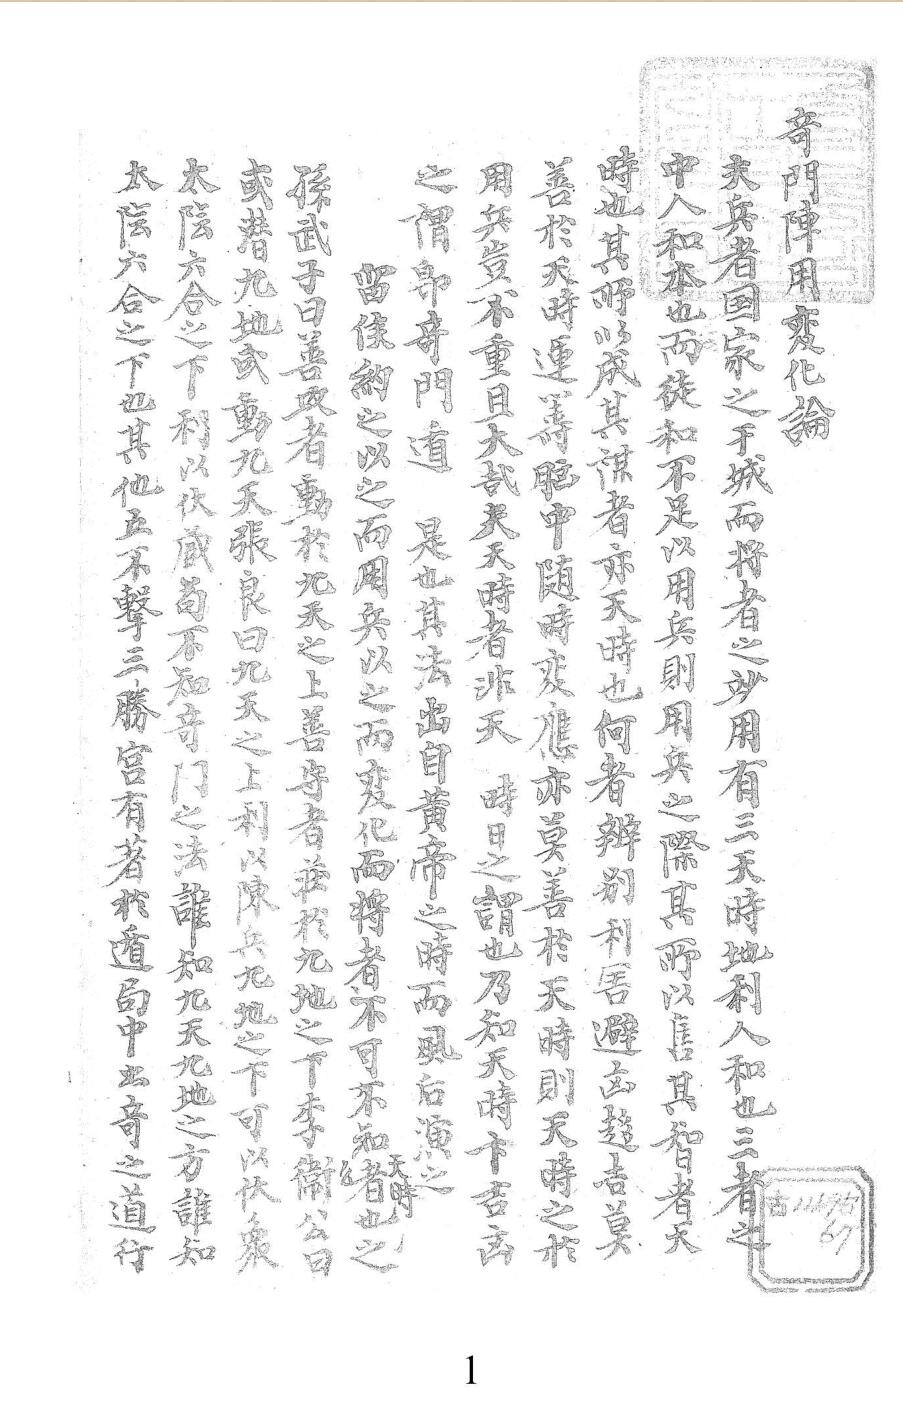 奇門陣用変化論
夫兵者国家之干城而将者之妙用有三天時地利人和也三者之
中人和本也而徒和不足以用兵則用兵之際其所以售其智者天
時也其所以成其謀者亦天時也何者辨别利害避凶趍吉莫
善於天時運籌胸中随時变應亦莫善於天時則天時之於
用兵豈不重且大哉夫天時者非天 時日之謂也乃知天時卞否㐫
之謂即奇門道 是也其法出自黃帝之時而風后演之
留侯約之以之而用兵以之而变化而将者不可不知者也之
天時
孫武子曰善攻者動於九天之上善守者藏於九地之下李衛公曰
或潜九地或動九天張良曰九天之上利以陳兵九地之下可以伏衆
太陰六合之下利以伏蔵苟不知奇门之法誰知九天九地之方誰知
太陰六合之下也其他五不擊三勝宮有著於遁局中出奇之道行
1